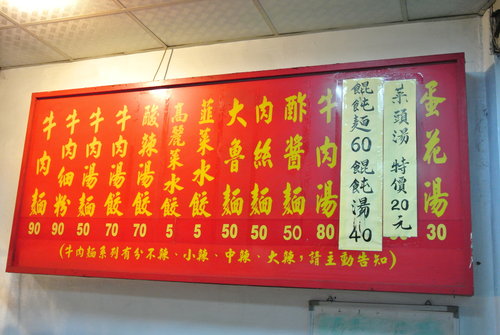 蛋花湯 30
菜頭湯 特價 20元
餛飩麵 60 餛飩湯 40
牛肉湯 80
酢醬麵 50
肉絲麵 50
大魯麵 50
韮菜水餃 5
高麗菜水餃 5
酸辣湯餃 70
牛肉湯餃 70
牛肉湯麵 50
牛肉細粉 90
牛肉麵 90
(牛肉麵系列有分不辣、小辣、中辣、大辣,請主動告知)